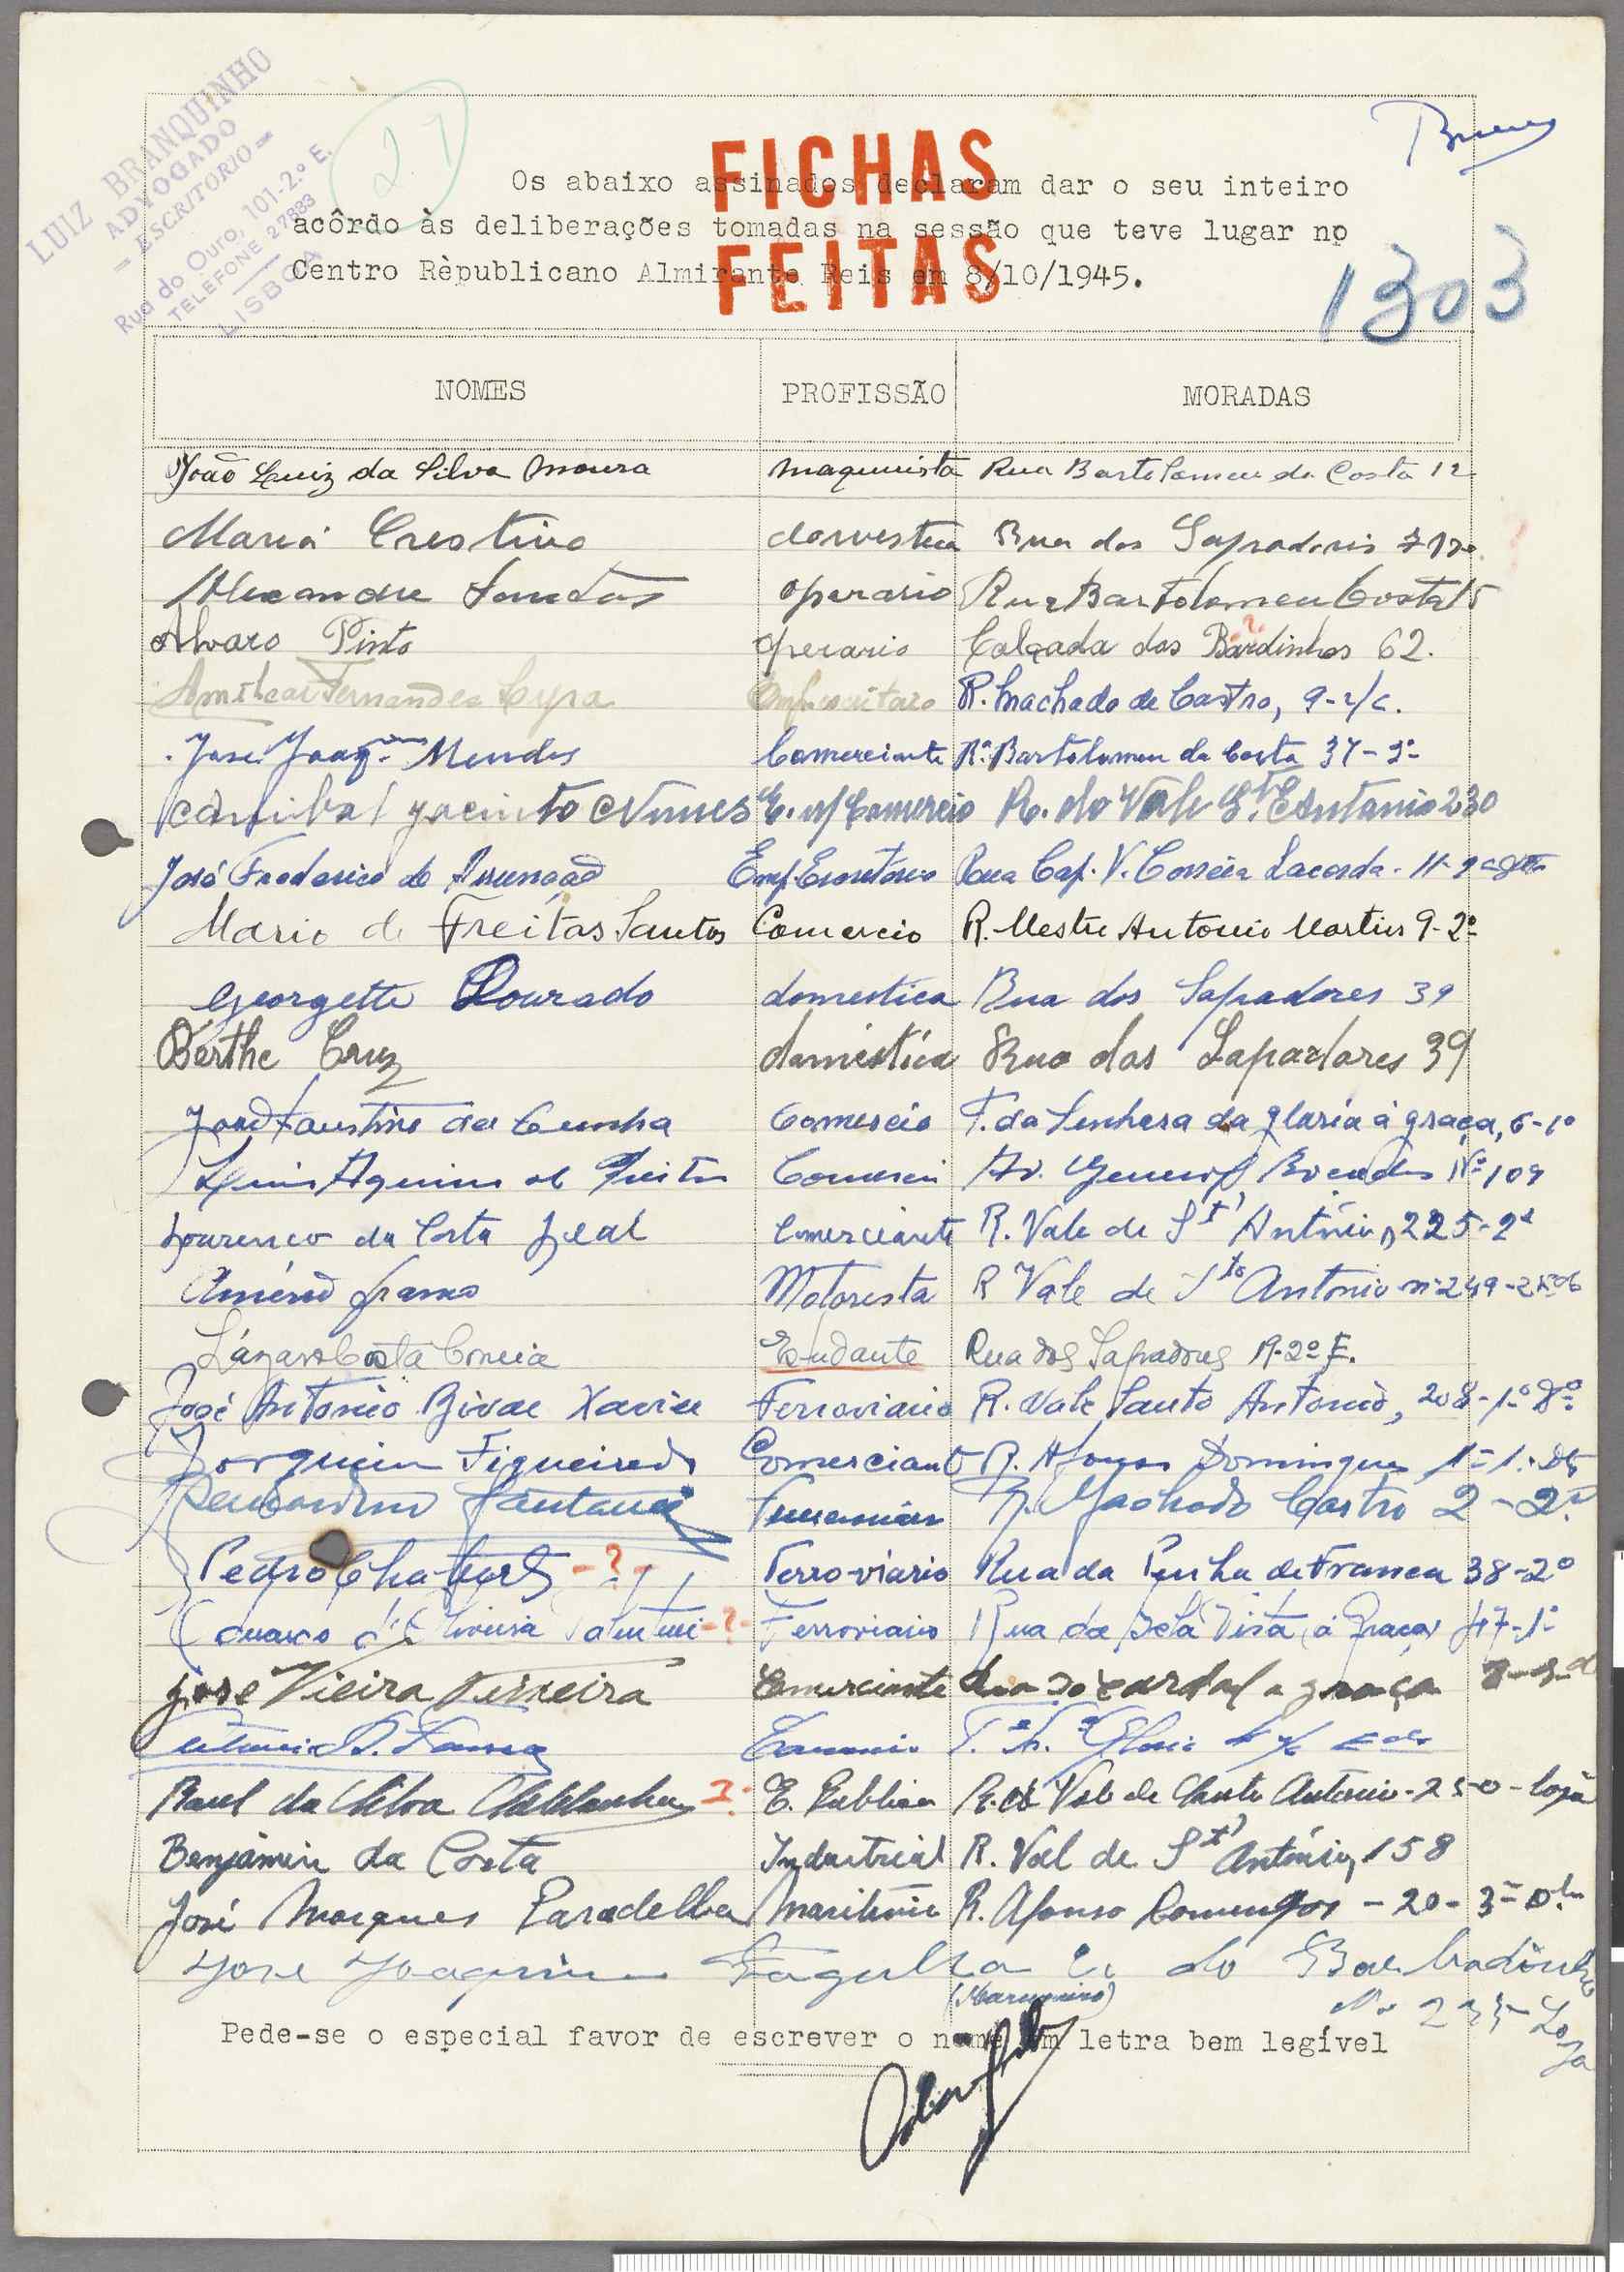 LUIZ BRANQUINHO
ADVOGADO
= ESCRITORIO =
Rua do Ouro, 101-2.º E.
TELEFONE 27883
LISBOA
27
FICHAS
FEITAS
1303
Os abaixo assinados declaram dar o seu inteiro
acôrdo às deliberações tomadas na sessão que teve lugar no
Centro Rèpublicano Almirante Reis em 8/10/1945.
NOMES PROFISSÃO MORADAS
João Luiz da Silva Moura maquinista Rua Bartolomeu da Costa 12
Maria Crestina Rua dos Sapadores
Alexandre operario Rua Bartolomeu Costa 15
Alvaro Pinto Operario Calçada dos Bardinhos 62.
Amilcar Fernandes R. Machado de Castro, 9-r/c.
José Joaqm Mendes Comerciante Rª. Bartolomeu da Costa 37-3º
Anibal Jacinto Nunes E. n/ Comercio R. do Vale Stº Antonio 230
José Frederico de Assunção Emp. Escritório Rua Cap. V. Corrêia Lacerda - 11-
Mario de Freitas Santos Comercio R. Mestre Antonio Martins 9-2º
Georgette Lourado domestica Rua dos Sapadores 39
Berthe Cruz doméstica Rua dos Sapadores 39
João Faustino da Cunha Comercio T. da Senhora da gloria á graça, 6-1º
Comercio Av. General Nº 109
Lourenco da Costa Leal Comerciante R. Vale de Stº António, 225-2º
Motorista R Vale de Sto Antonio nº 249-
Lázaro Costa Correia Estudante Rua dos Sapadores 19-2º E.
José Antonio Bivar Xavier Ferroviario R. Vale Santo Antonio, 208-1º Dº
Joaquim Figueiredo Comerciante R. Afonso Domingues 1-1.º Dto
Santana R. Machado Castro 2-2º
Pedro -?- Ferro-viario Rua da Penha de Franca 38-2º
-?- Ferroviario Rua da Bela Vista (á Graça) 47-1º
José Vieira Teixeira Comerciante Rua do cardal a graça
Antonio Comercio T. Sª Gloria
Raul da Silva ? E. Publico R. do Vale de Santo Antonio - 250 - loja
Benjamin da Costa Industrial R. Val de Stº António, 158
José Marques Paradella Maritimo R. Afonso Domingos - 20 - 3º Dto
José Joaquim Fagulha do Barbadinho
(Marceneiro) Nº Loja
Pede-se o especial favor de escrever o nome em letra bem legível